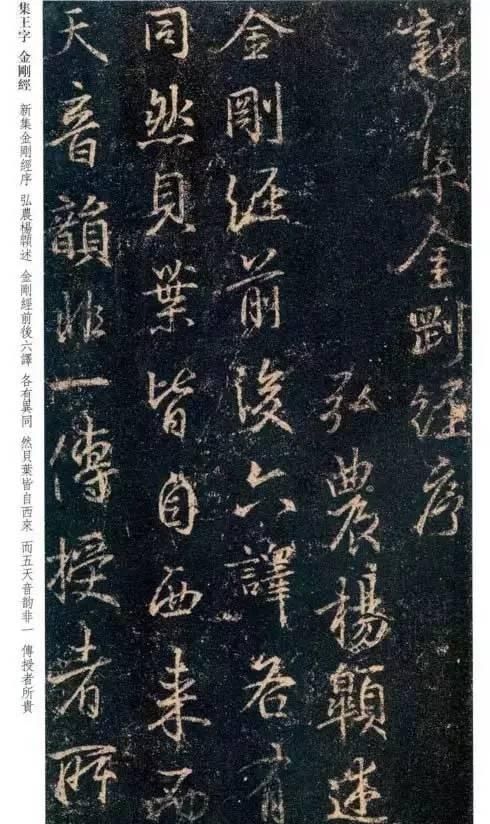 新集金剛經序
弘農楊顗述
金剛經前後六譯各有
同然貝葉皆自西来而
天音韻非一傳授者所
集王字 金剛經 新集金剛經序 弘農楊顗述 金剛經前後六譯 各有異同 然貝葉皆自西來 而五天音韵非一 傳授者所貴